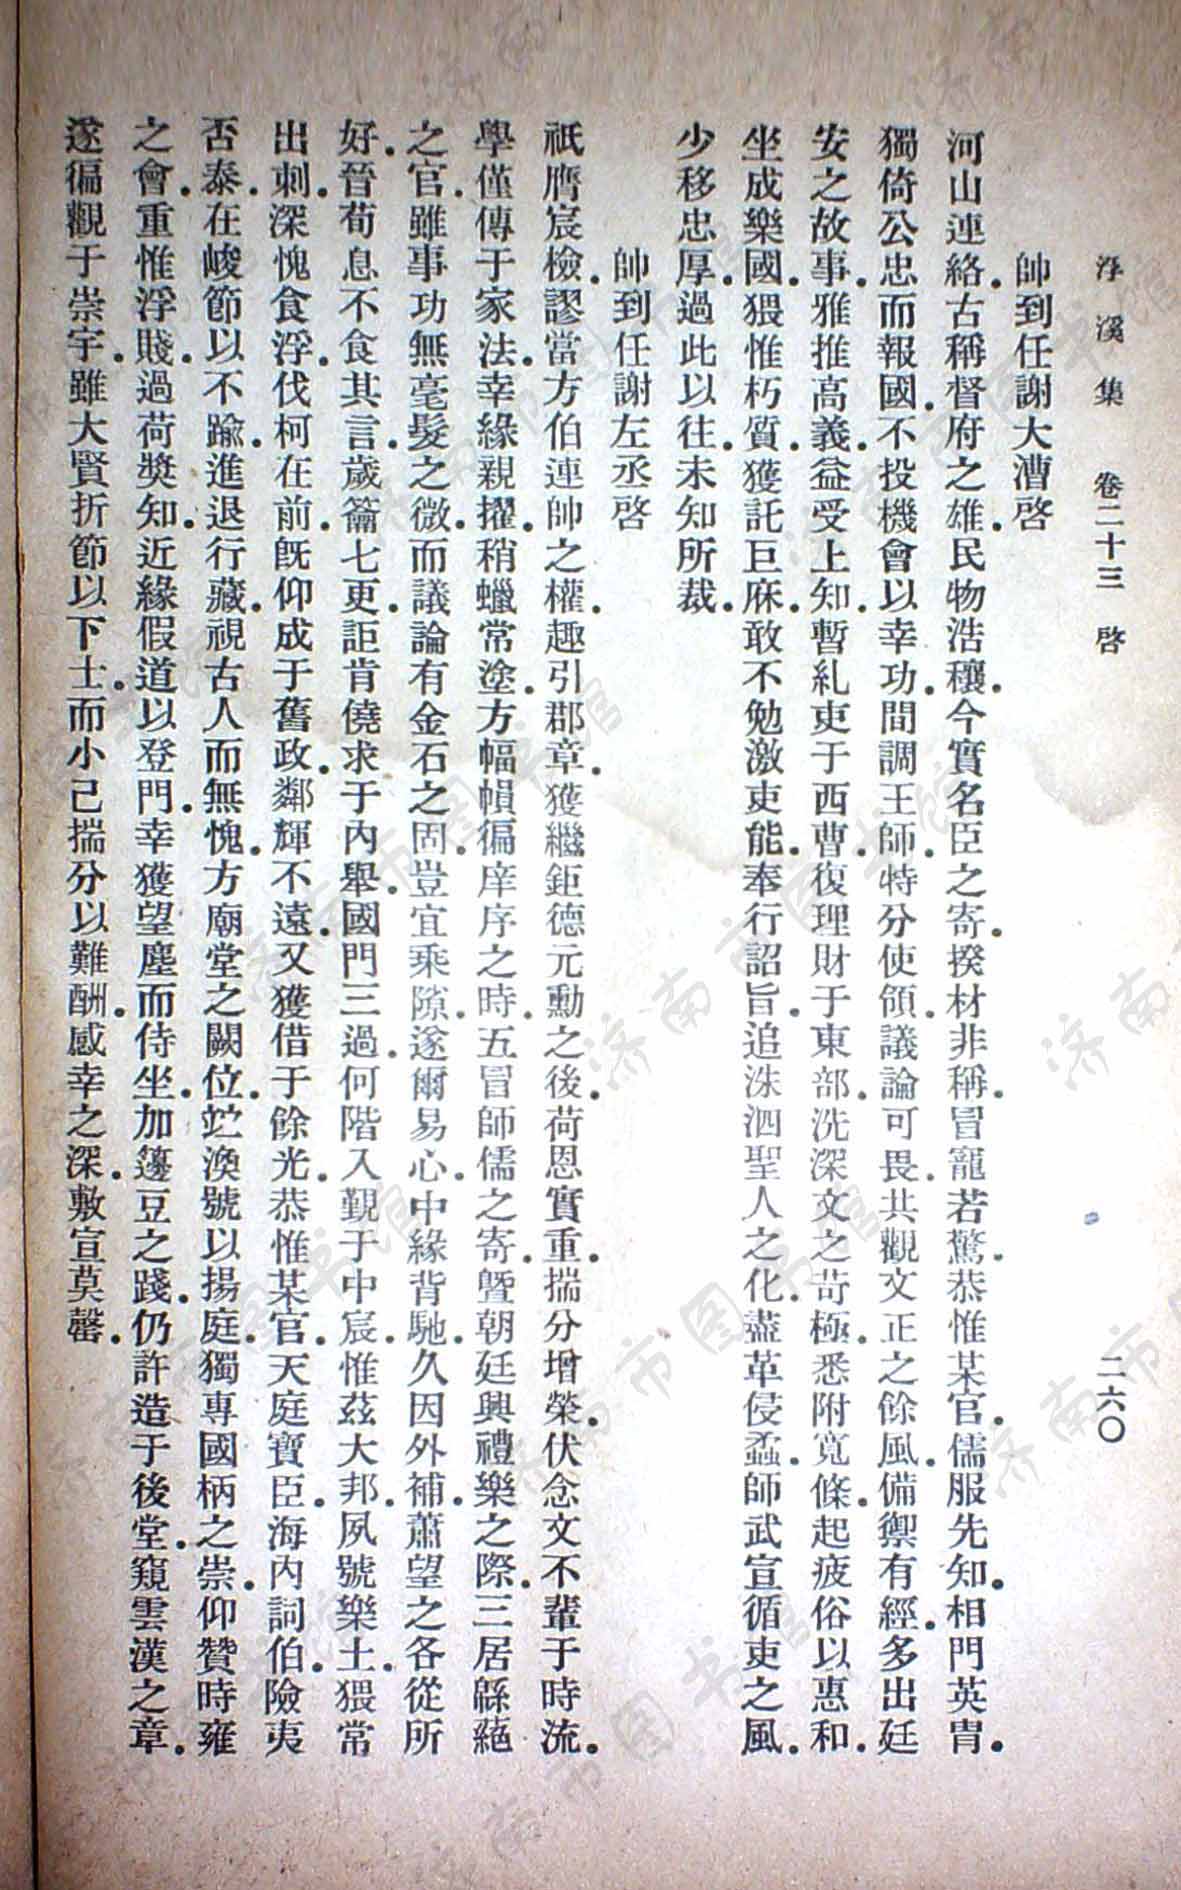 浮溪集　卷二十三　啓　二六〇
帥到任謝大漕啓
河山連絡．古稱督府之雄．民物浩穰．今實名臣之寄．揆材非稱．冒寵若驚．恭惟某官．儒服先知．相門英胄．
獨倚公忠而報國．不投機會以幸功．間調王師．特分使領．議論可畏．共觀文正之餘風．備禦有經．多出廷
安之故事．雅推高義．益受上知．暫糺吏于西曹．復理財于東部．洗深文之苛極．悉附寬條．起疲俗以惠和．
坐成樂國．猥惟朽質．獲託巨庥．敢不勉激吏能．奉行詔旨．追洙泗聖人之化．盡革侵蟊．師武宣循吏之風．
少移忠厚．過此以往．未知所裁．
帥到任謝左丞啓
祇膺宸檢．謬當方伯連帥之權．趣引郡章．獲繼鉅德元勳之後．荷恩實重．揣分增榮．伏念文不輩于時流．
學僅傳于家法．幸緣親擢．稍蠟常塗．方幅幀徧庠序之時．五冒師儒之寄．曁朝廷興禮樂之際．三居緜蕝
之官．雖事功無毫髮之微．而議論有金石之固．豈宜乘隙．遂爾易心．中緣背馳．久因外補．蕭望之各從所
好．晉荀息不食其言．歲籥七更．詎肯僥求于內舉．國門三過．何階入覲于中宸．惟茲大邦．夙號樂土．猥常
出刺．深愧食浮．伐柯在前．旣仰成于舊政．鄰輝不遠．又獲借于餘光．恭惟某官．天庭寶臣．海內詞伯．險夷
否泰．在峻節以不踰．進退行藏．視古人而無愧．方廟堂之闕位．竝渙號以揚庭．獨專國柄之崇．仰贊時雍
之會．重惟浮賤．過荷獎知．近緣假道以登門．幸獲望塵而侍坐．加籩豆之踐．仍許造于後堂．窺雲漢之章．
遂徧觀于崇宇．雖大賢折節以下士．而小己揣分以難酬．感幸之深．敷宣莫罄．